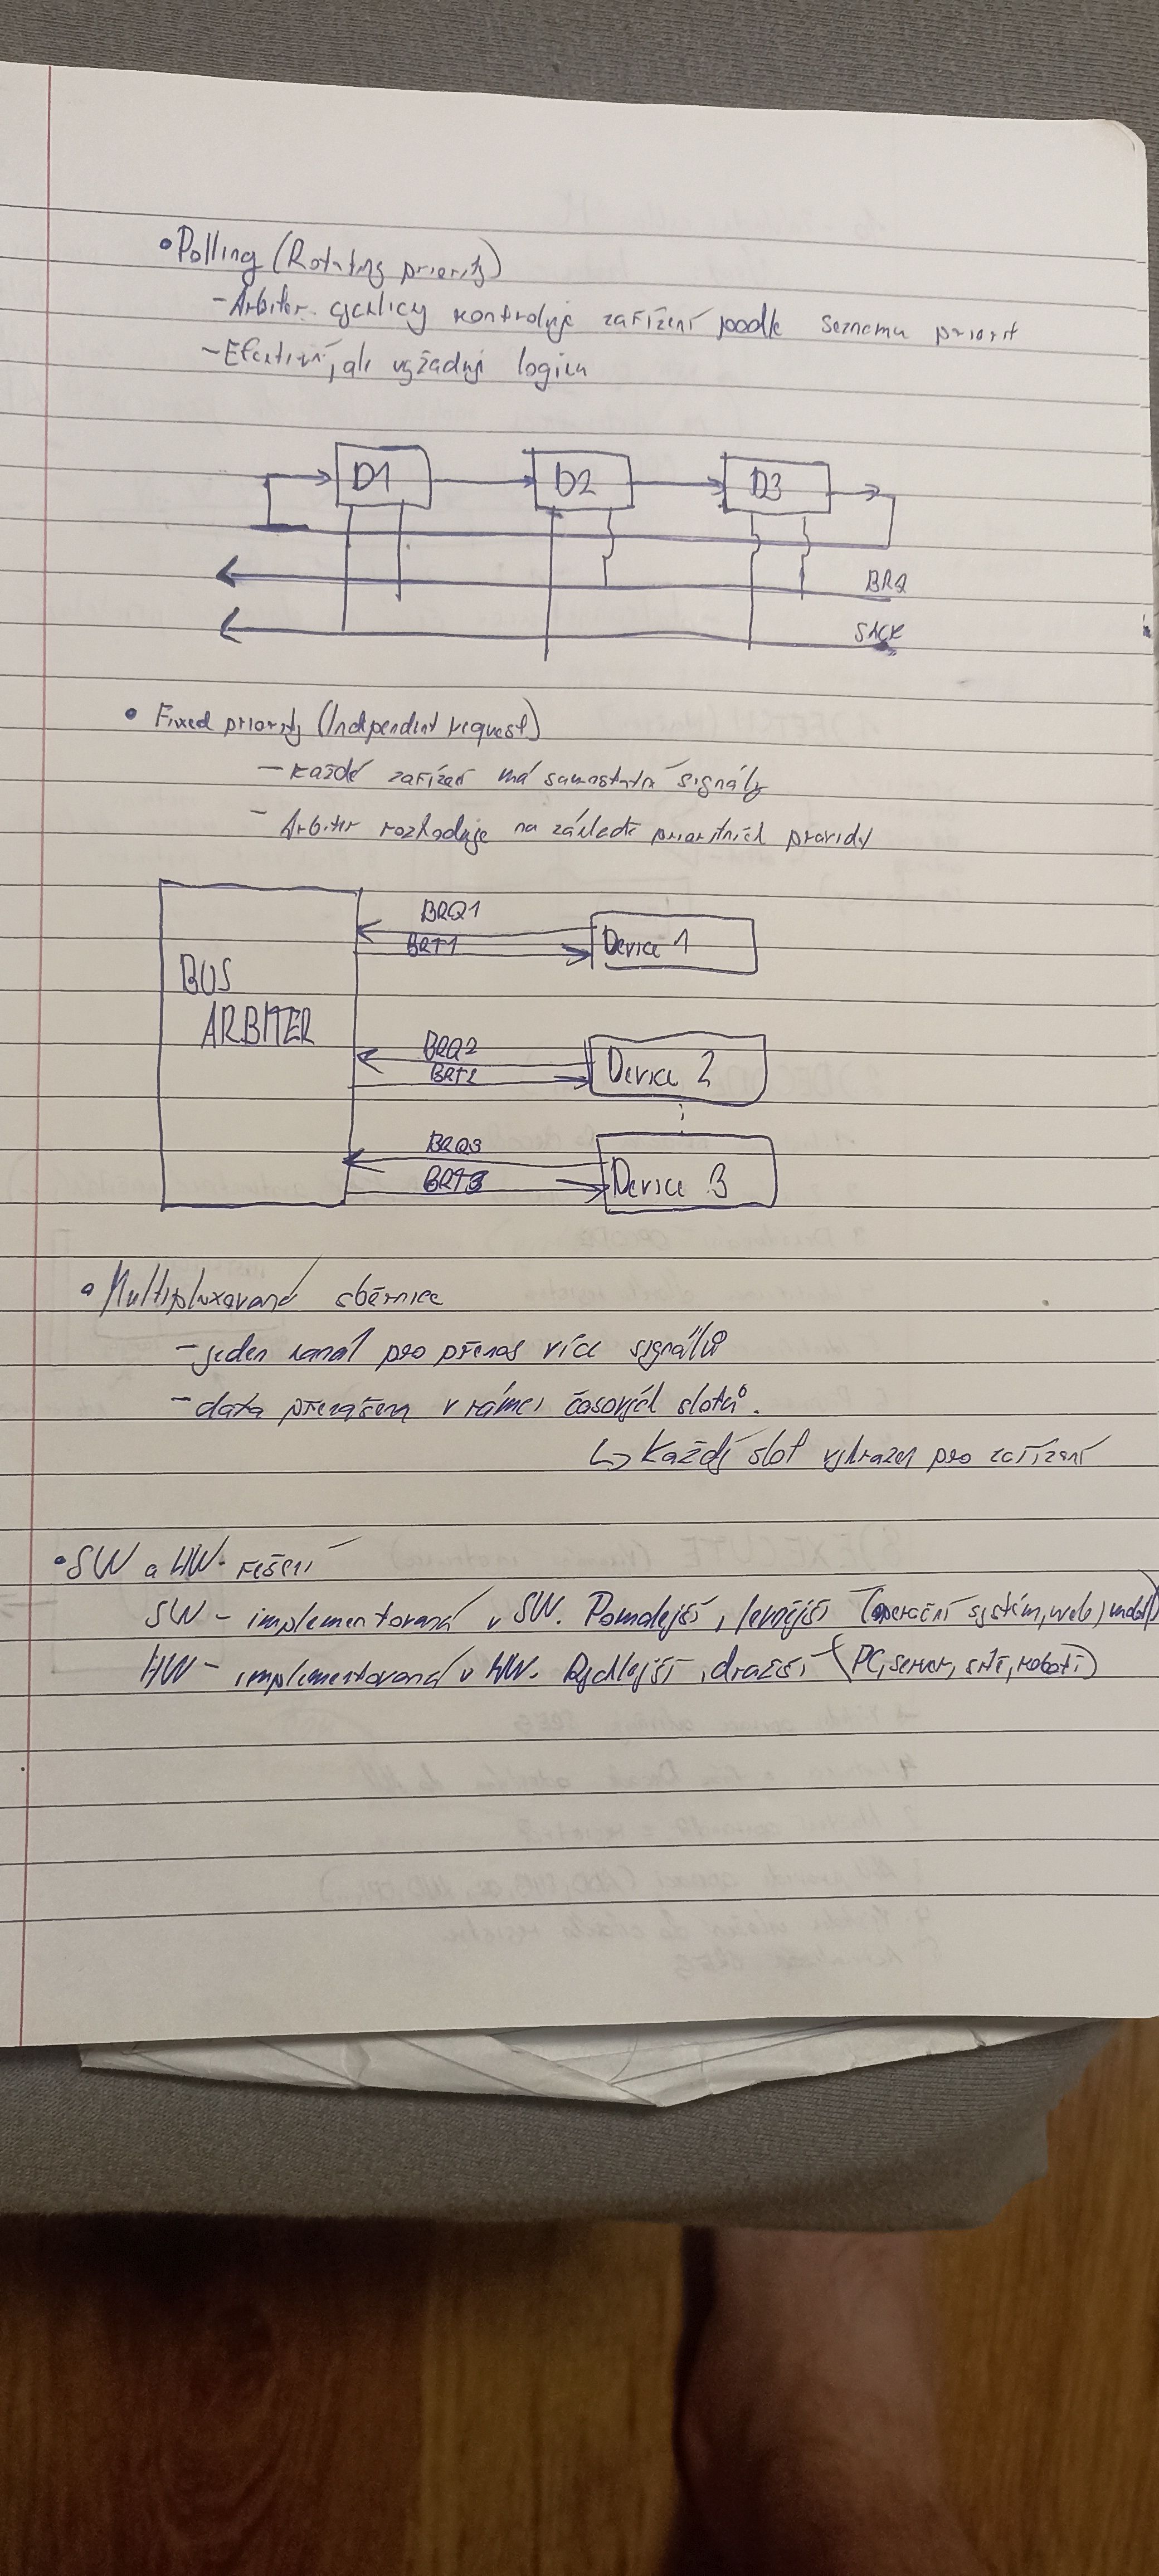 • Polling (Rotating priority)
- Arbiter cyclicky kontroluje zařízení podle seznamu priorit
- Efektivní, ale vyžaduje logiku
D1 D2 D3
BRQ
SACK
• Fixed priority (Independent request)
- každé zařízení má samostatné signály
- Arbiter rozhoduje na základě prioritních pravidel
BRQ1
BRT1 Device 1
BUS
ARBITER
BRQ2
BRT2 Device 2
BRQ3
BRT3 Device 3
• Multiplexované sběrnice
- jeden kanál pro přenos více signálů
- data přenášena v rámci časových slotů.
↳ Každý slot vyhrazen pro zařízení
• SW a HW řešení
SW - implementovaná v SW. Pomalejší, levnější (operační systém, web,
HW - implementovaná v HW. Rychlejší, dražší (PC, server, sítě, roboti)